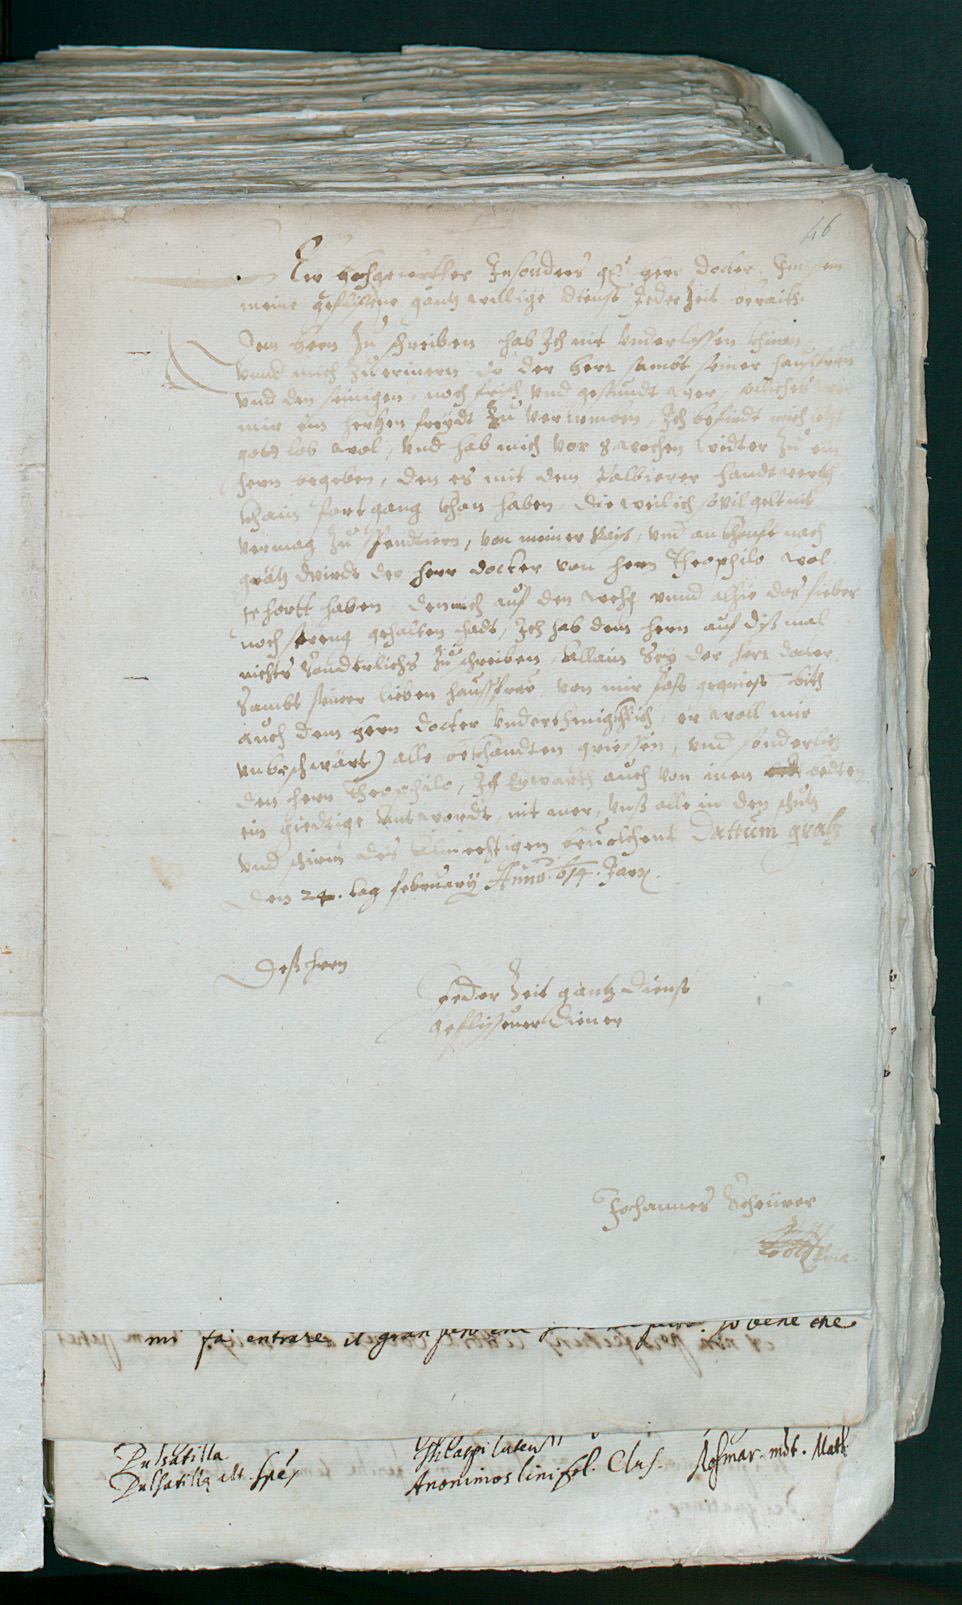 46
Ew hochgeierther Insonders gl. herr docter. Im sein
meine geflissene gantz willige dienst Jederzeit beraith.
Dem hern zu schreiben hab Ich nit underlassen khinen
unnd mich zu erinern, ob der herr sambt seiner haussfrau
und den seinigen, noch frisch und gesundt wer, söliches wer
mir ein hertzen freydt zu vernemen, Ich befindt mich jetzt
gott lob wol, und hab mich vor 8 wochen widter zu ein
hern begeben, den es mit dem Palbierer handtwerkh
khain fortgang khan haben, dieweil ich sovil gelt nit
vermag zu spendiern, von meiner Rays, und ankhonft nach
grätz wirdt der herr docter von hern Theophilo wol
gehortt haben, den mich auf den weg unnd alhie das fieber
noch streng gehalten hadt, Ich hab dem hern auf diß mal
nichts sonderlichs zu schreiben, allain sey der herr docter
sambt seiner lieben haussfrau von mir fast griest, bith
auch dem hern docter underthenigkhlich, er woll mir
unbeschwärt) alle bekhandten griessen, und sönderlich
den hern Theophilo, Ich erwarth auch von inen beden
ein giedtige antwordt, nit mer, unß alle in den schutz
und schirm des Almechtigen bevelhent Dattum grätz
den 24. tag february Anno. 614. Jars.
Deß hern
Jeder Zeit gantz dienst
geflissner diener
Johannes Scheurer
mi fai entrare il gran bene che
Pulsatilla
Pulsatilla alt. spēs
Thlaspi luteu
Anonimos lini fol. Clus.
Rosmar. mdt. Math